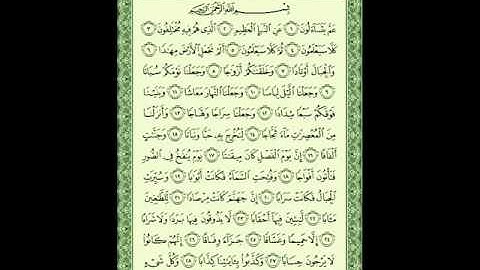 بِسْمِ ٱللَّهِ ٱلرَّحْمَٰنِ ٱلرَّحِيمِ
عَمَّ يَتَسَآءَلُونَ ١ عَنِ ٱلنَّبَإِ ٱلْعَظِيمِ ٢ ٱلَّذِى هُمْ فِيهِ مُخْتَلِفُونَ ٣
كَلَّا سَيَعْلَمُونَ ٤ ثُمَّ كَلَّا سَيَعْلَمُونَ ٥ أَلَمْ نَجْعَلِ ٱلْأَرْضَ مِهَٰدًا ٦
وَٱلْجِبَالَ أَوْتَادًا ٧ وَخَلَقْنَٰكُمْ أَزْوَٰجًا ٨ وَجَعَلْنَا نَوْمَكُمْ سُبَاتًا
٩ وَجَعَلْنَا ٱلَّيْلَ لِبَاسًا ١٠ وَجَعَلْنَا ٱلنَّهَارَ مَعَاشًا ١١ وَبَنَيْنَا
فَوْقَكُمْ سَبْعًا شِدَادًا ١٢ وَجَعَلْنَا سِرَاجًا وَهَّاجًا ١٣ وَأَنزَلْنَا
مِنَ ٱلْمُعْصِرَٰتِ مَآءً ثَجَّاجًا ١٤ لِّنُخْرِجَ بِهِۦ حَبًّا وَنَبَاتًا ١٥ وَجَنَّٰتٍ
أَلْفَافًا ١٦ إِنَّ يَوْمَ ٱلْفَصْلِ كَانَ مِيقَٰتًا ١٧ يَوْمَ يُنفَخُ فِى ٱلصُّورِ
فَتَأْتُونَ أَفْوَاجًا ١٨ وَفُتِحَتِ ٱلسَّمَآءُ فَكَانَتْ أَبْوَٰبًا ١٩ وَسُيِّرَتِ
ٱلْجِبَالُ فَكَانَتْ سَرَابًا ٢٠ إِنَّ جَهَنَّمَ كَانَتْ مِرْصَادًا ٢١ لِّلطَّٰغِينَ
مَـَٔابًا ٢٢ لَّٰبِثِينَ فِيهَآ أَحْقَابًا ٢٣ لَّا يَذُوقُونَ فِيهَا بَرْدًا وَلَا شَرَابًا
٢٤ إِلَّا حَمِيمًا وَغَسَّاقًا ٢٥ جَزَآءً وِفَاقًا ٢٦ إِنَّهُمْ كَانُوا۟
لَا يَرْجُونَ حِسَابًا ٢٧ وَكَذَّبُوا۟ بِـَٔايَٰتِنَا كِذَّابًا ٢٨ وَكُلَّ شَىْءٍ